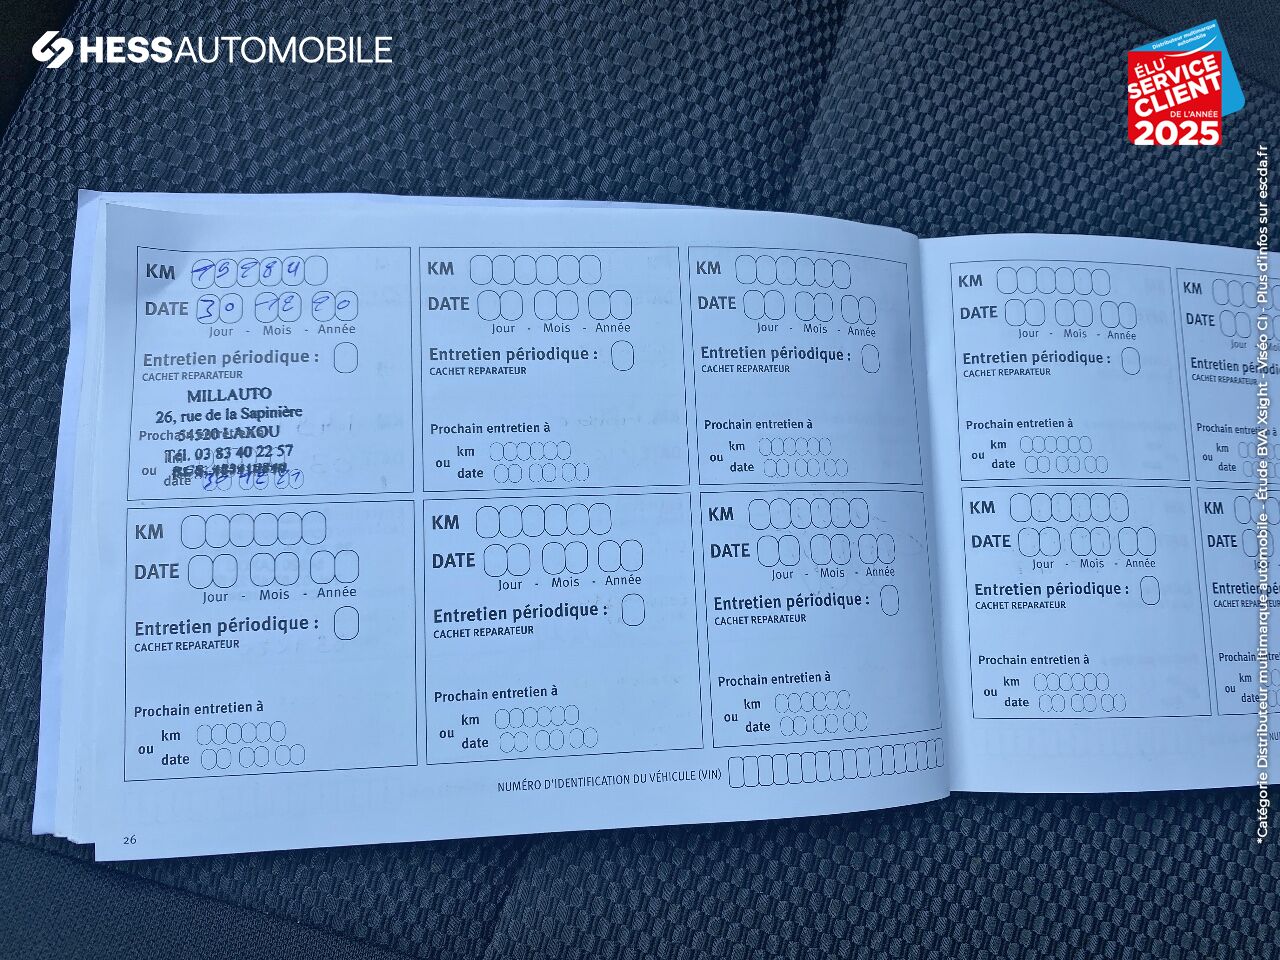 HESSAUTOMOBILE
Distributeur multimarque
automobile
ÉLU
SERVICE
CLIENT
DE L'ANNÉE
2025
*Catégorie Distributeur multimarque automobile - Étude BVA Xsight - Viséo CI - Plus d'infos sur escda.fr
KM
DATE 30 12 20
Jour - Mois - Année
Entretien périodique :
CACHET REPARATEUR
MILLAUTO
26, rue de la Sapinière
54520 LAXOU
Tél. 03 83 40 22 57
ou
date
KM
DATE
Jour - Mois - Année
Entretien périodique :
CACHET REPARATEUR
Prochain entretien à
km
ou
date
KM
DATE
Jour - Mois - Année
Entretien périodique :
CACHET REPARATEUR
Prochain entretien à
km
ou
date
KM
DATE
Jour - Mois - Année
Entretien périodique :
CACHET REPARATEUR
Prochain entretien à
km
ou
date
KM
DATE
Jour - Mois - Année
Entretien périodique :
CACHET REPARATEUR
Prochain entretien à
km
ou
date
KM
DATE
Jour - Mois - Année
Entretien périodique :
CACHET REPARATEUR
Prochain entretien à
km
ou
date
NUMÉRO D'IDENTIFICATION DU VÉHICULE (VIN)
26
KM
DATE
Jour - Mois - Année
Entretien périodique :
CACHET REPARATEUR
Prochain entretien à
km
ou
date
KM
DATE
Jour
Entretien
CACHET REPARATEUR
km
ou
date
KM
DATE
Jour - Mois - Année
Entretien périodique :
CACHET REPARATEUR
Prochain entretien à
km
ou
date
KM
DATE
Jour
km
ou
date